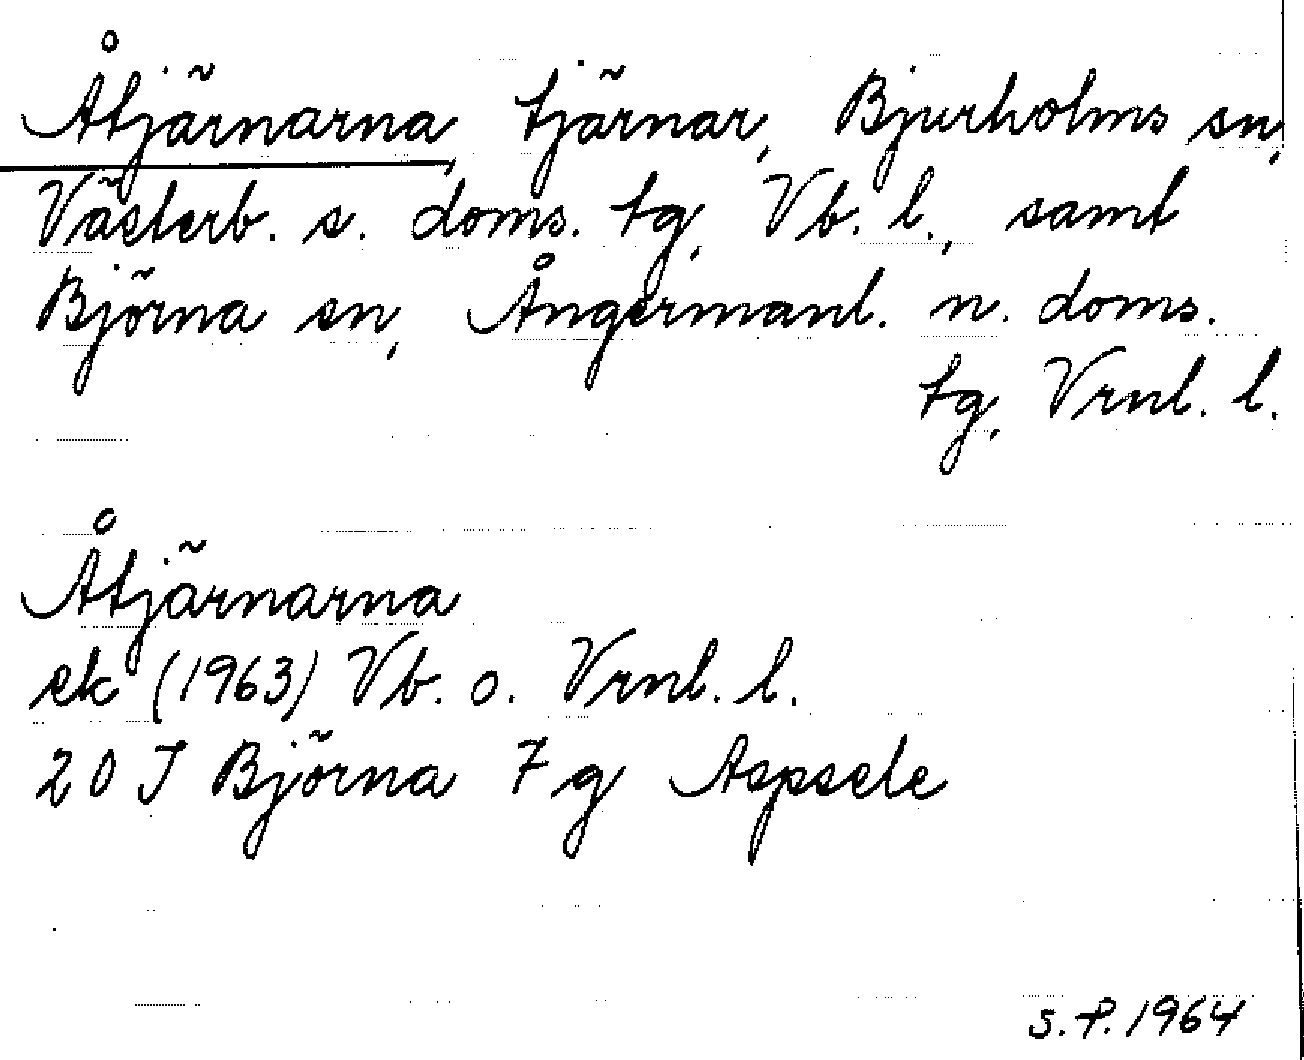 Åtjärnarna, tjärnar, Bjurholms sn,
Västerb. s. doms. tg, Vb. l., samt
Björna sn, Ångermanl. n. doms.
tg, Vrnl. l.
Åtjärnarna
ek (1963) Vb. o. Vrnl. l.
20 J Björna 7 g Aspsele
S. P. 1964